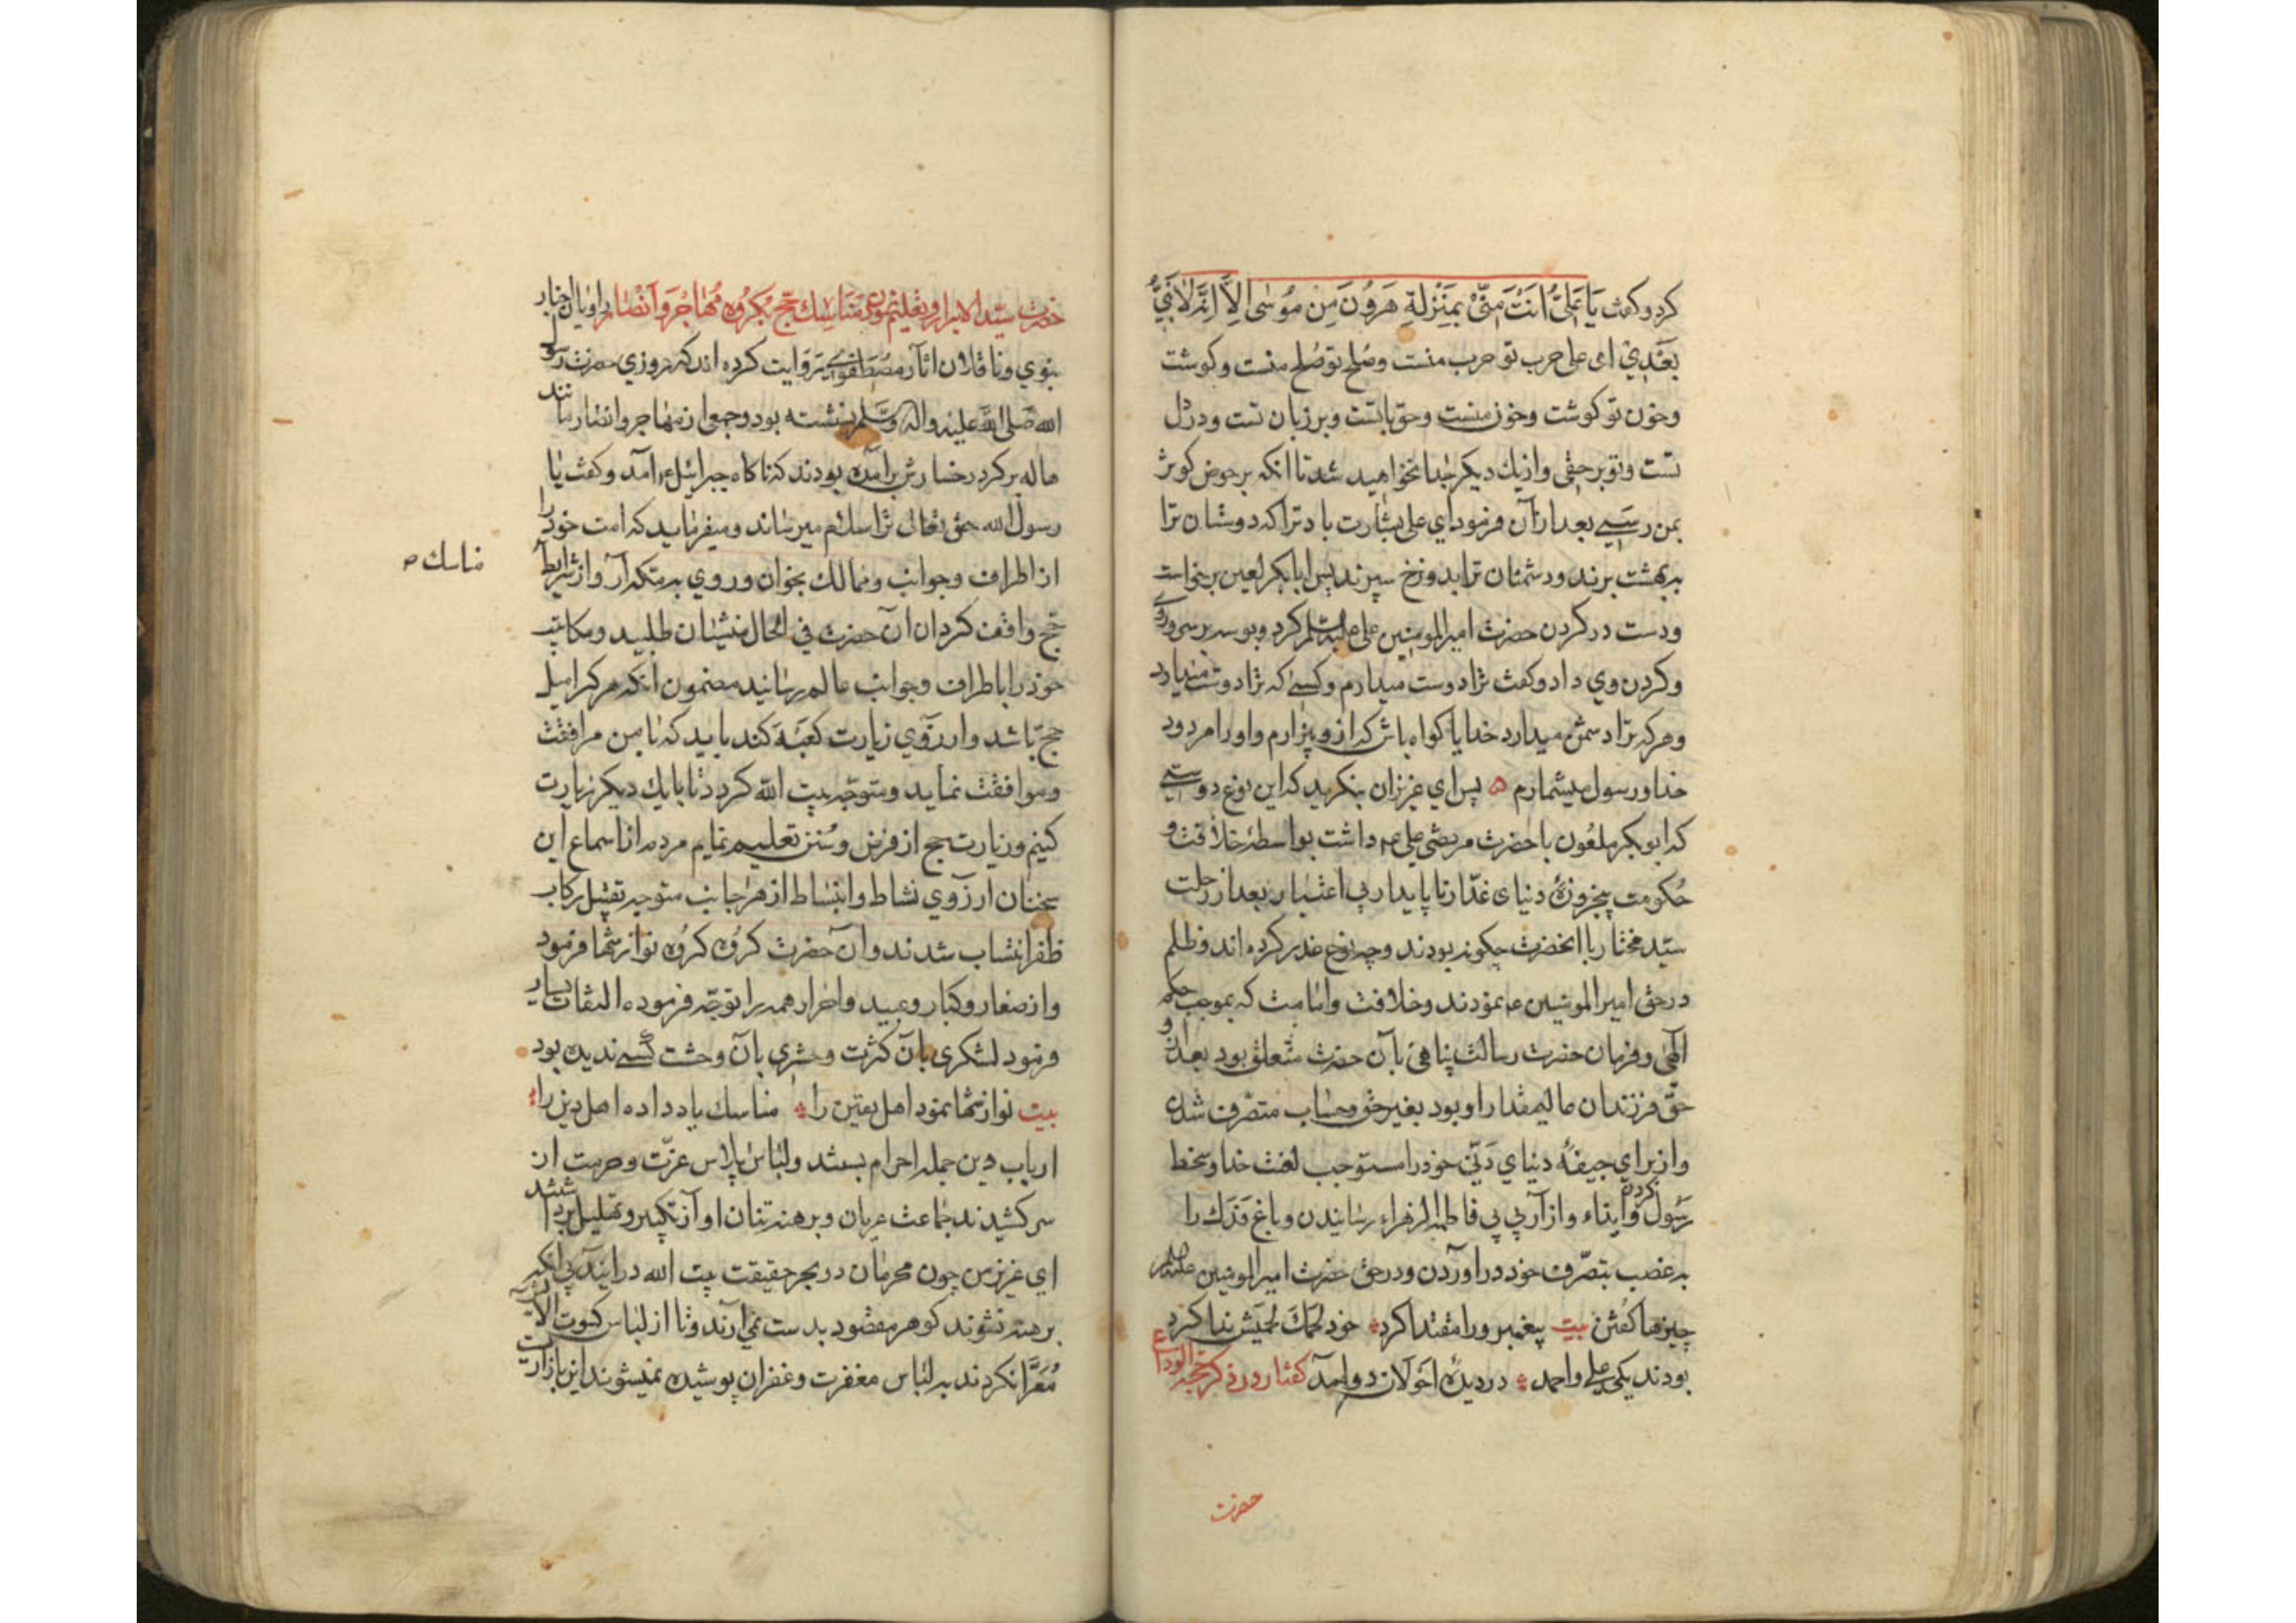 کرد و کفت یَا عَلیُّ اَنتَ مِنّیْ بِمَنْزِلَةِ هَرُوُنَ مِنْ مُوُسٰی اِلاَّ اِنَّهُ لاٰنَبیَّ
بَعَدِیْ ای علی حرب تو حرب منست وصُلح تو صُلح منست و کوشت
وخون تو کوشت وخون منست وحق باتست وبر زبان تست ودر دل
تست وتو بر حقی واز یك دیکر جُدا نخواهید شد تا انکه بر حوض کوثر
بمن رسَیے بعد ازآن فرمود ای علی بشارت باد ترا که دوستان ترا
به بهشت برند ودشمنان ترا بدوزخ سپرند پس ابابکر لعین برخواست
ودست در کردن حضرت امیرالمومنین علی علیه السلم کرد وبوسه بر سی وروی
وکردن وی داد وکفت ترا دوست میدارم وکسیے که ترا دوست میدارد
وهرکه ترا دشمن میدارد خدایا کواه باش که ازو بیزارم واورا مردود
خدا ورسول میشمارم ه پس ای عزیزان بنکرید که این نوع دوستیے
که ابوبکر ملعُون با حضرت مرتضی علی ع م داشت بواسطهٔ خلاٰفت و
حُکومت پنجروزهٔ دنیای غدّار ناپایدار بی اعتبار بعد از رحلت
سیّد مختار با انحضرت چکونه بودند وچه نوع غدر کرده اند وظلم
در حق امیرالمومنین ع م نمودند وخلافت وامامت که بموجب حکم
آلٓهی وفرمان حضرت رسالت پناهی بآن حضرت متعلق بود بعدان و
حقّ فرزندان عالیمقدار او بود بغیر حق وحساب متصّرف شدن
واز برای جیفهٔ دنیای دَنیّ خودرا مستوجب لعنت خدا وسخط
رَسُول کردن وایذاء وازآر بی بی فاطمة الزهراء رسٰایندن وباغ فَدَك را
به غصب بتصّرف خود دراوردن ودر حق حضرت امیرالمومنین علیه السلم
چیزها کفتن بیت پیغمبر ورا مقتدا کرد خود لحمَكَ لَحمیَش ندا کرد
بودند یکی علی واحمد دردیدهٔ احَولان دو امد کفتار در ذکر حجة الوداع
حضرت
حضرت سیّد الابرار وتعلیم نمودن مَنَاسِك حَجّ بکرُوه مُهٰاجر وَ اَنْصٰار راویان اخبار
نبوی وناقلان اثار مصُطَفوی بروَایت کرده اند که روزی حضرت رسول
الله صَلی اللّه علیه واله وَسَّلم نشسته بود وجمعی از مُهٰاجر وانصار مانند
هاله بر کرد رخسارش برامدَه بودند که ناکاه جبرائیل ع امد وکفت یا
رسول الله حق تعالی تراسلاٰم میرساند ومیفرماید که امت خود را
از اطراف وجوانب وممالك بخوان وروی بمکه آر واز شرایط
مناسك ص
حج واقف کردان آن حضرت فی الحال منشیٰان طلبید ومکاتیب
خودرا باطراف وجوانب عالم رسانید مضمون انکه هرکرا میل
حج باشد وارزوی زیارت کعبَه کند باید که بامن مرافقت
وموافقت نماید ومتوجّه بیت اللّه کردد تا بایك دیکر زیارت
کنیم وزیارت حج از فرض وسُنن تعلیم نمایم مردم از اسماع این
سخنان ارزوی نشاط وانبساط از هر جانب متوجه تقبیل رکاب
ظفر انتساب شدند وآن حضرت کروه کروه نوازشها فرمود
واز صغار وکبار وعبید واحرار همه را توجّه فرموده التفات بسیار
فرمود لشکری بآن کثرت وحشری بآن وحشت کسیے ندیده بود
بیت نوازشها نمود اهل یقین را مناسك یاد داده اهل دین را
ارباب دین جمله احرام بستند ولباس پلاس عزّت وحرمت از
سر کشیدند جماعت عریان وبرهنه تنان اواز تکبیر وتهلیل برداشتند
ای عزیز من چون محرمان در بحر حقیقت بیت الله درایند تا بی انکه
برهنه نشوند کوهر مقصُود بدست نمی آرند وتا از لباس کسوت الا
مُعَرَّا نکردند به لباس مغفرت وغفران پوشیده نمیشوند این بازار